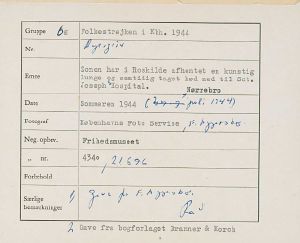 Gruppe 6g Folkestrejken i Kbh. 1944
Nr.
Emne Sonen har i Roskilde afhentet en kunstig
lunge og samtidig taget ked med til Sct.
Joseph Hospital. Nørrebro
Dato Sommeren 1944 ( juli 1944)
Fotograf Københavns Foto Service,
Neg. opbev. Frihedsmuseet
„ nr. 4340, 21696
Forbehold
Særlige 1)
bemærkninger
2 Gave fra bogforlaget Branner & Korch